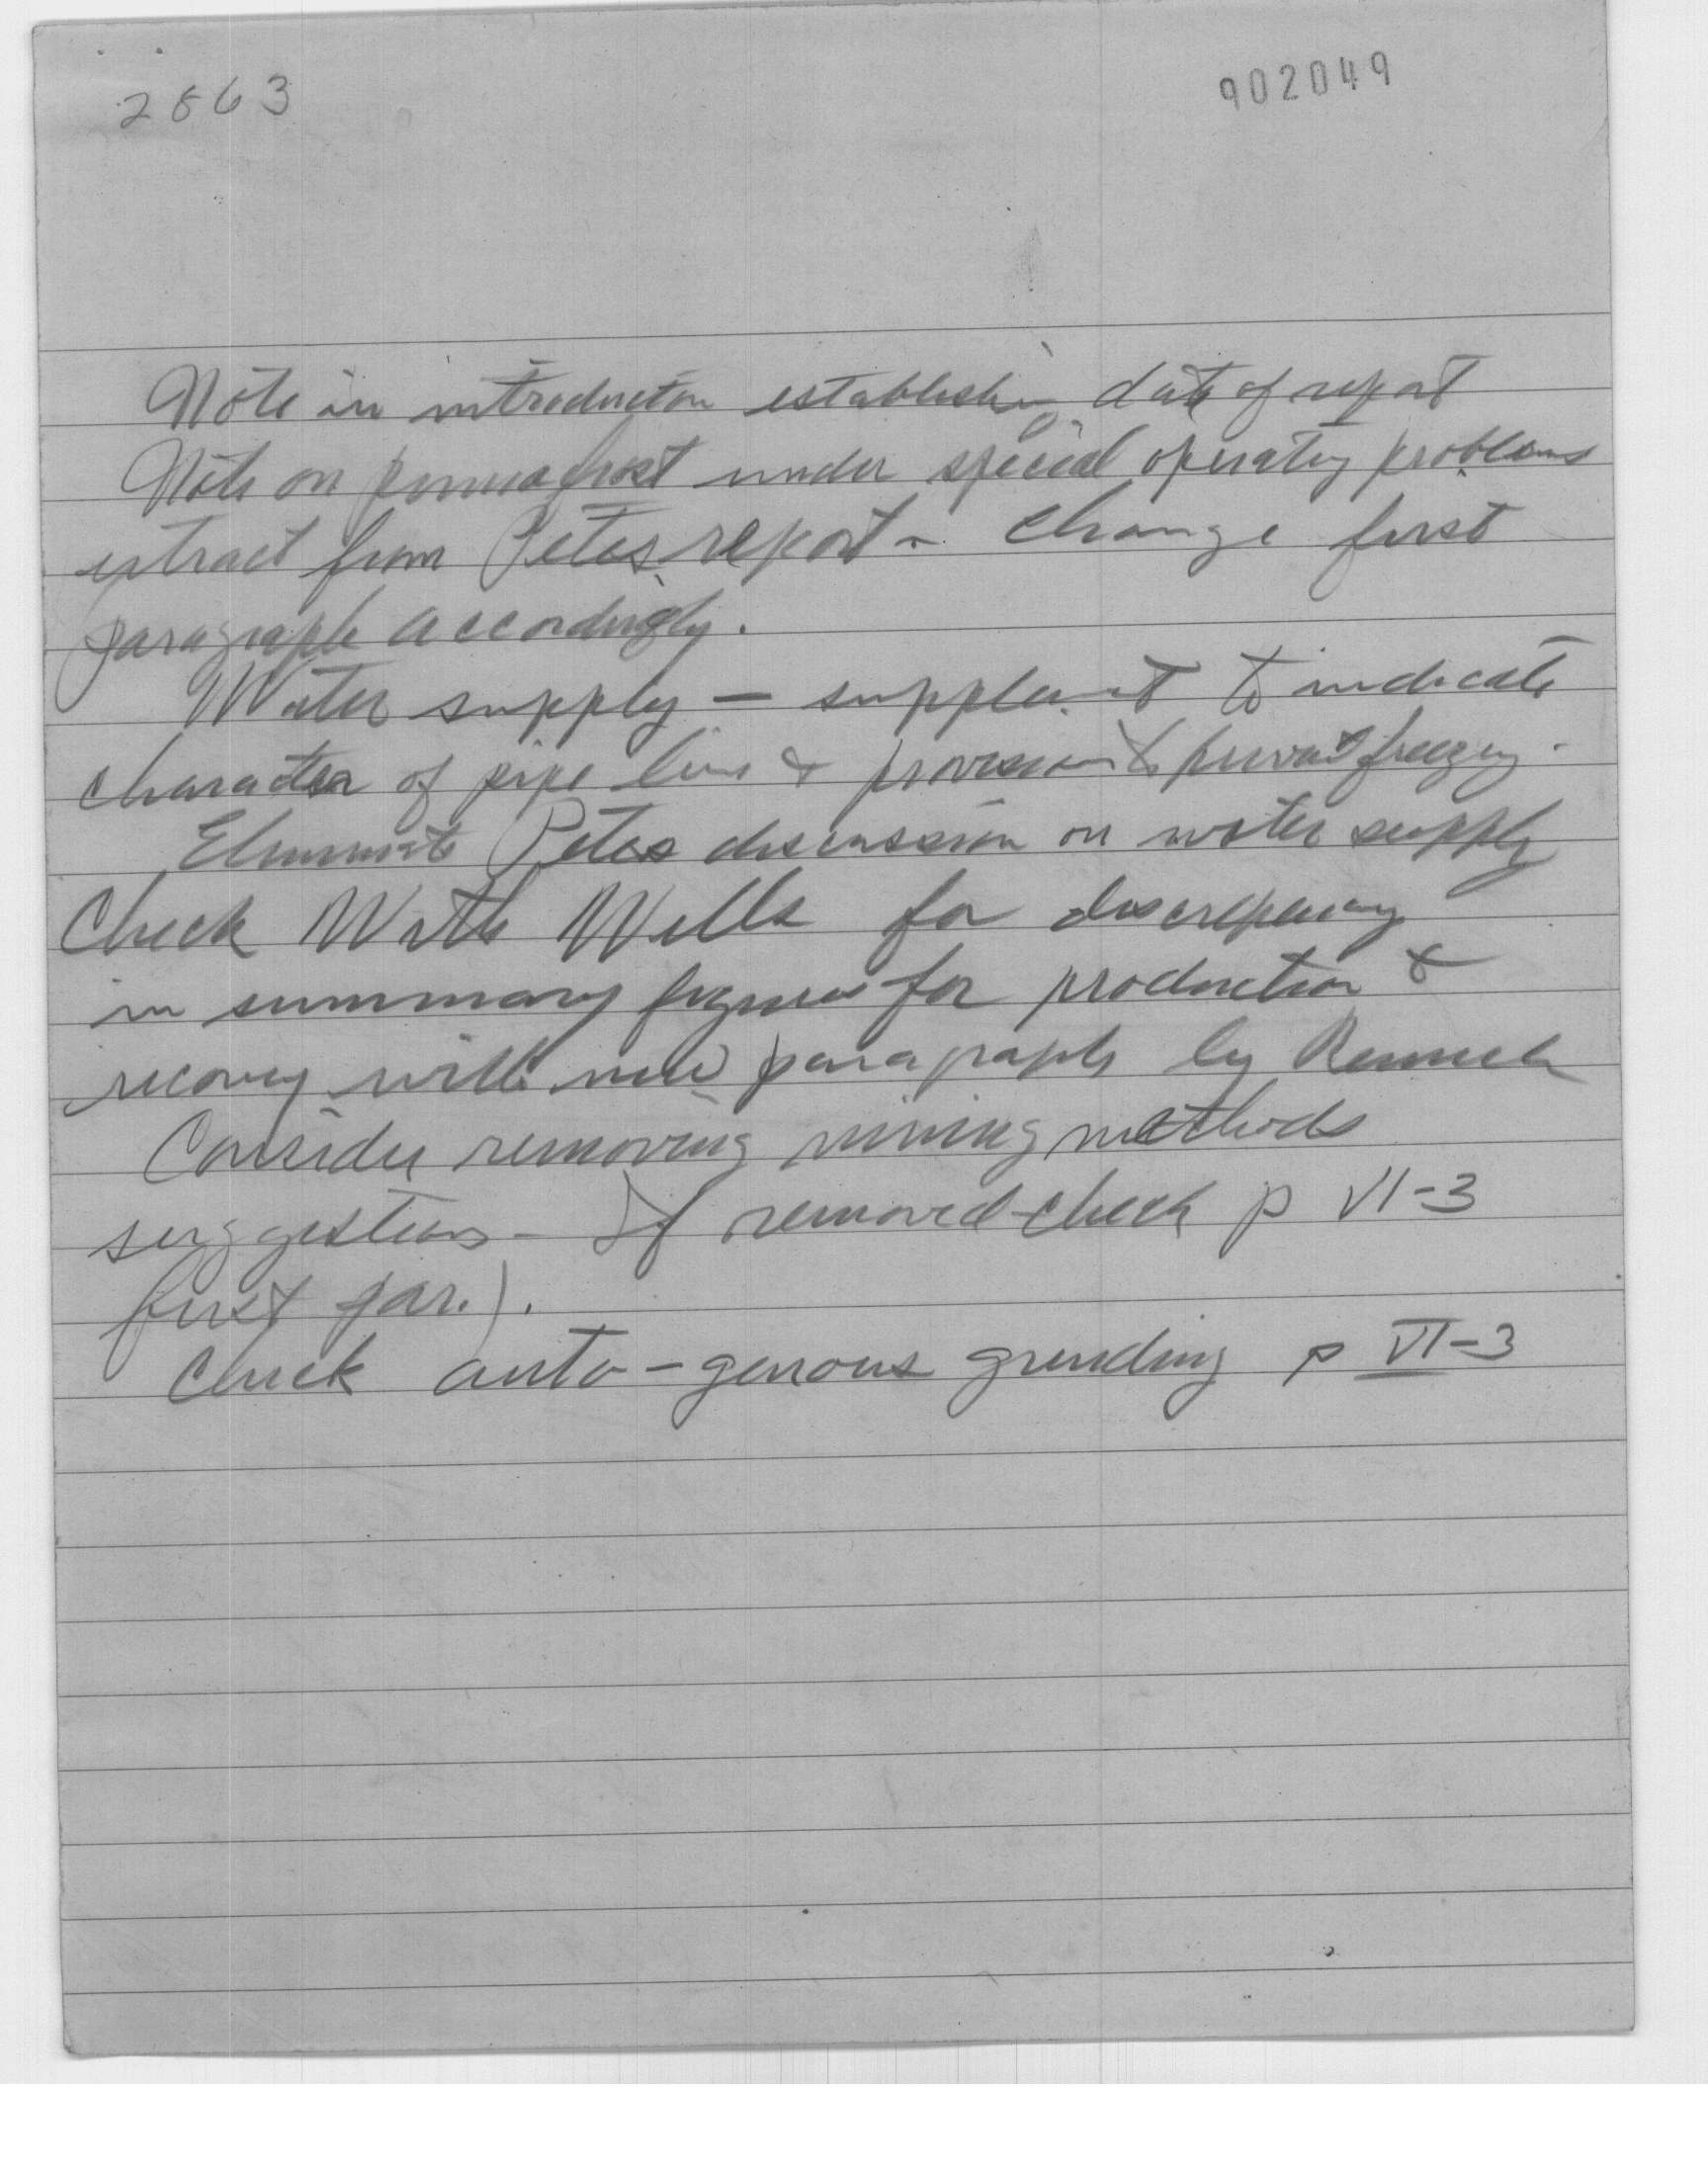 2863
902049
Note in introduction establishing date of report
Note on permafrost under special operating problems
extract from Petes report - change first
paragraph accordingly.
Water supply — supplement to indicate
character of pipe line & provision to prevent freezing.
Eliminate Petes discussion on water supply
Check With Wells for discrepancy
in summary figures for production &
recovery with new paragraph by
Consider removing mining methods
suggestions - If removed check p VI-3
first par.).
Check auto-genous grinding p VI-3